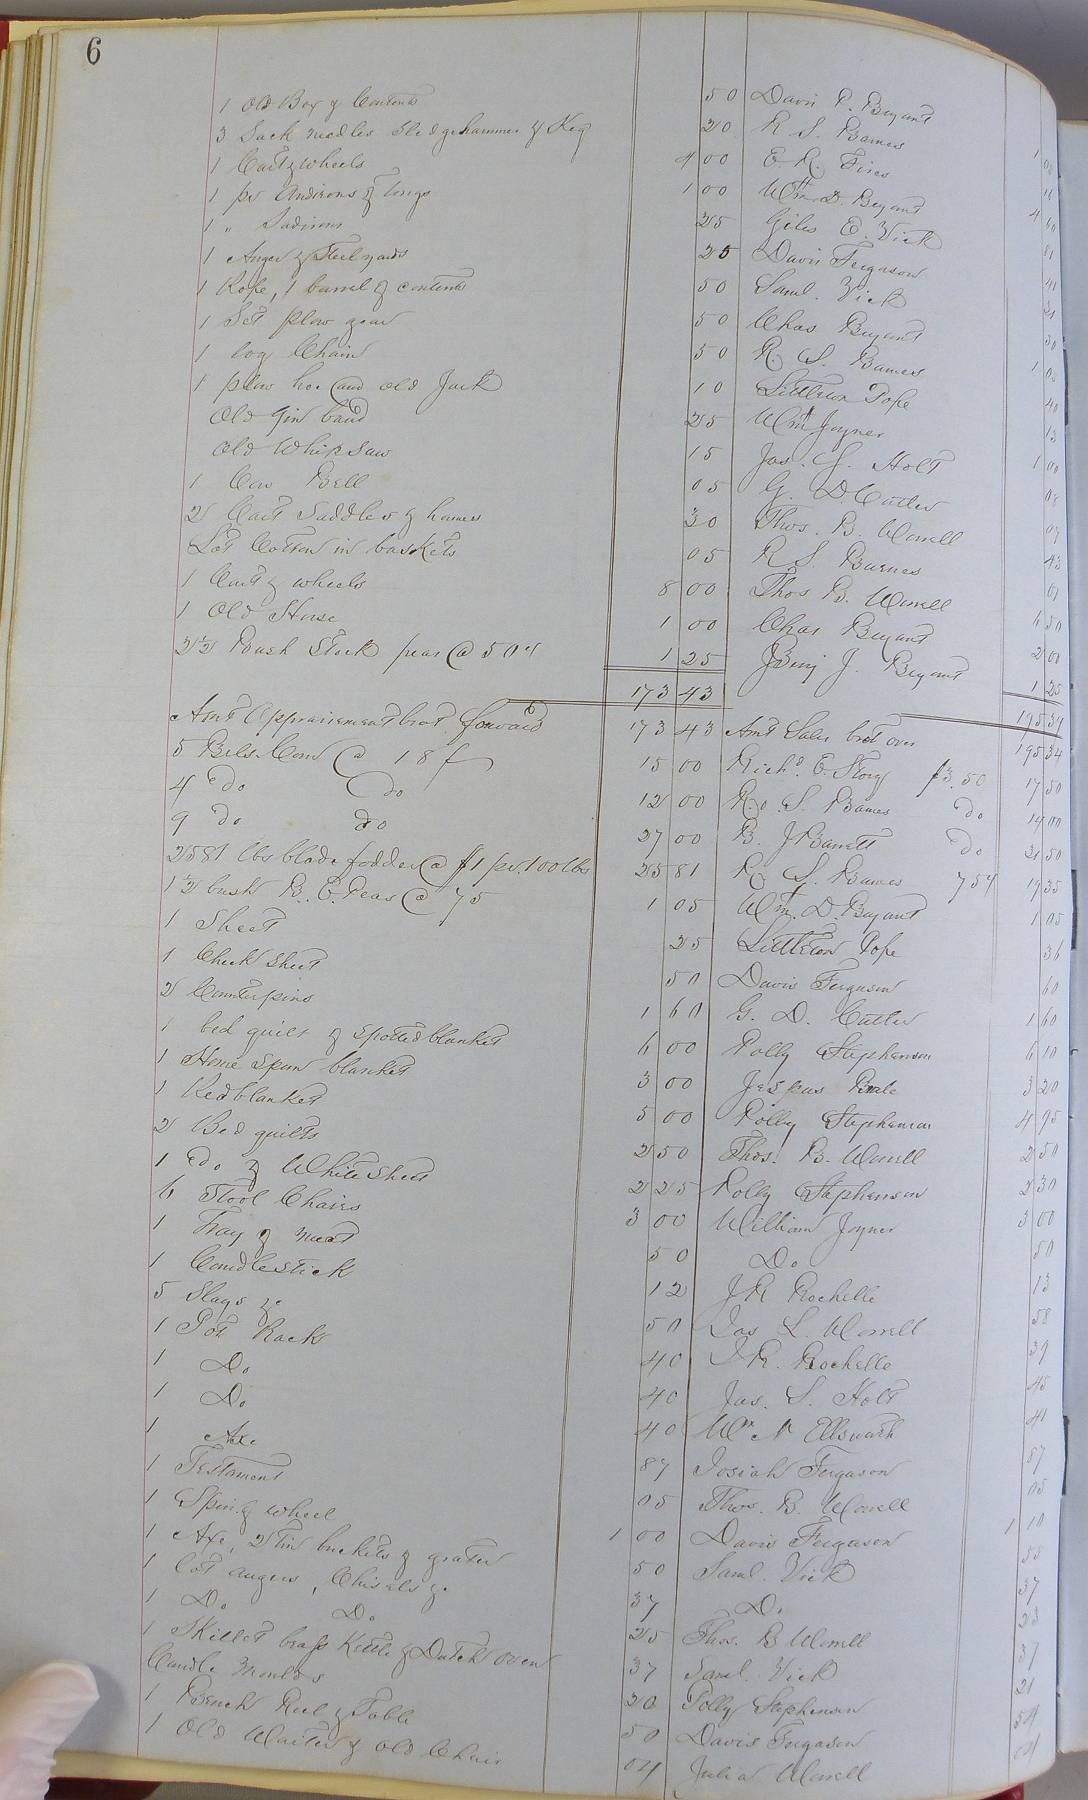 6
1 Old Box & Contents 50 Davis P. Bryant
3 Sack needles Sledgehammer & Keg 20 R S. Barnes
1 Cart & wheels 4 00 E R.
1 pr Andirons & Tongs 1 00 Wm D. Bryant
1 " Sadirons 25 Giles E. Vick
1 Auger & Steelyards 25 Davis Ferguson
1 Rope, 1 barrel & contents 50 Saml. Vick
1 Set Plow gear 50 Chas Bryant
1 log Chain 50 R. S. Barnes
1 plow hoe and old Jack 10 Littleton Pope
Old Gin band 25 Wm Joyner
Old Whipsaw 15 Jas. S. Holt
1 Cow Bell 05 G. D. Cutler
2 Cart Saddles & hames 30 Thos. B. Worrell
Lot Cotton in baskets 05 R S. Barnes
1 Cart & wheels 8 00 Thos B. Worrell
1 Old Horse 1 00 Chas Bryant 2 00
2½ Bush Stock peas @ 50 cts 1 25 Benj J. Bryant 1 25
173 43 195 34
Amt Appraisement brot forward 173 43 Amt Sales brot over 195 34
5 Bbls. Corn @ 18/ 15 00 Richd. E. Story $3.50 17 50
4 Do Do 12 00 R. S. Barnes Do 14 00
9 Do Do 27 00 B. J Barrett Do 31 50
2581 lbs blade fodder @ $1 pr. 100 lbs 25 81 R. S. Barnes 75 cts 19 35
1½ bush B. E. Peas @ 75 1 05 Wm. D. Bryant 1 05
1 Sheet 25 Littleton Pope 36
1 Check Sheet 50 Davis Ferguson 60
2 Counterpins 1 60 G. D. Cutler 1 60
1 bed quilt & Spotted blanket 6 00 Polly Stephenson 6 10
1 Home Spun blanket 3 00 Jespus Beale 3 20
1 Red blanket 5 00 Polly Stephenson 4 95
2 Bed quilts 2 50 Thos. B. Worrell 2 50
1 Do & White Sheet 2 25 Polly Stephenson 2 30
6 Stool Chairs 3 00 William Joyner 3 00
1 Tray & meat 50 Do 50
1 Candlestick 12 J R Rochelle 13
5 Slays &c 50 Jas L. Worrell 58
1 Pot Rack 40 J. R. Rochelle 39
1 Do 40 Jas. S. Holt 45
1 Do 40 Wm N Ellsworth 41
1 Axe 87 Josiah Ferguson 87
1 Testament 05 Thos. B. Worrell 05
1 Spin.g wheel 1 00 Davis Ferguson 1 10
1 Axe, 2 Tin buckets & grater 50 Saml. Vick 55
1 lot augers, Chisels &c. 37 Do. 37
1 Do. Do. 25 Thos. B Worrell 23
1 Skillet brass Kettle & Dutch oven 37 Saml. Vick 37
Candle Moulds 20 Polly Stephenson 21
1 Bench Reel & Table 50 Davis Ferguson 54
1 Old Waiter & old Chair 04 Julia Worrell 04